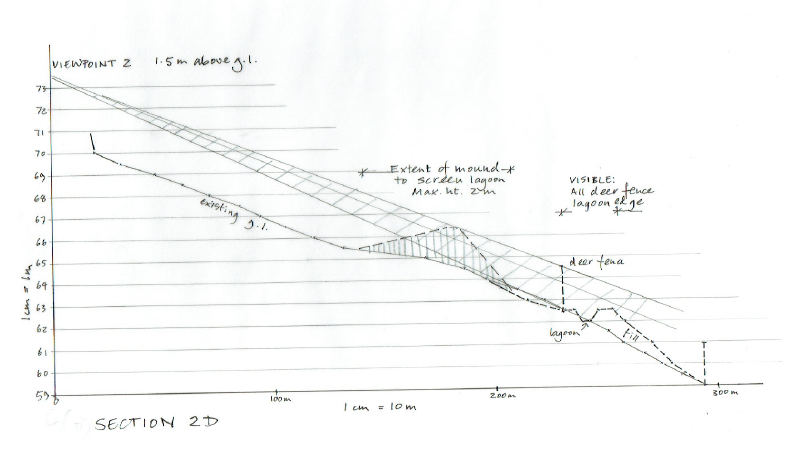 VIEWPOINT 2    1.5m above g.l.
73
72
71
70
69
68
67
66
65
64
63
62
61
60
59
1cm = 1m
existing g.l.
Extent of mound
to screen lagoon
Max. ht. 2m
VISIBLE:
All deer fence
lagoon edge
deer fence
lagoon
fill
0
100m
200m
300m
1 cm = 10m
SECTION 2D